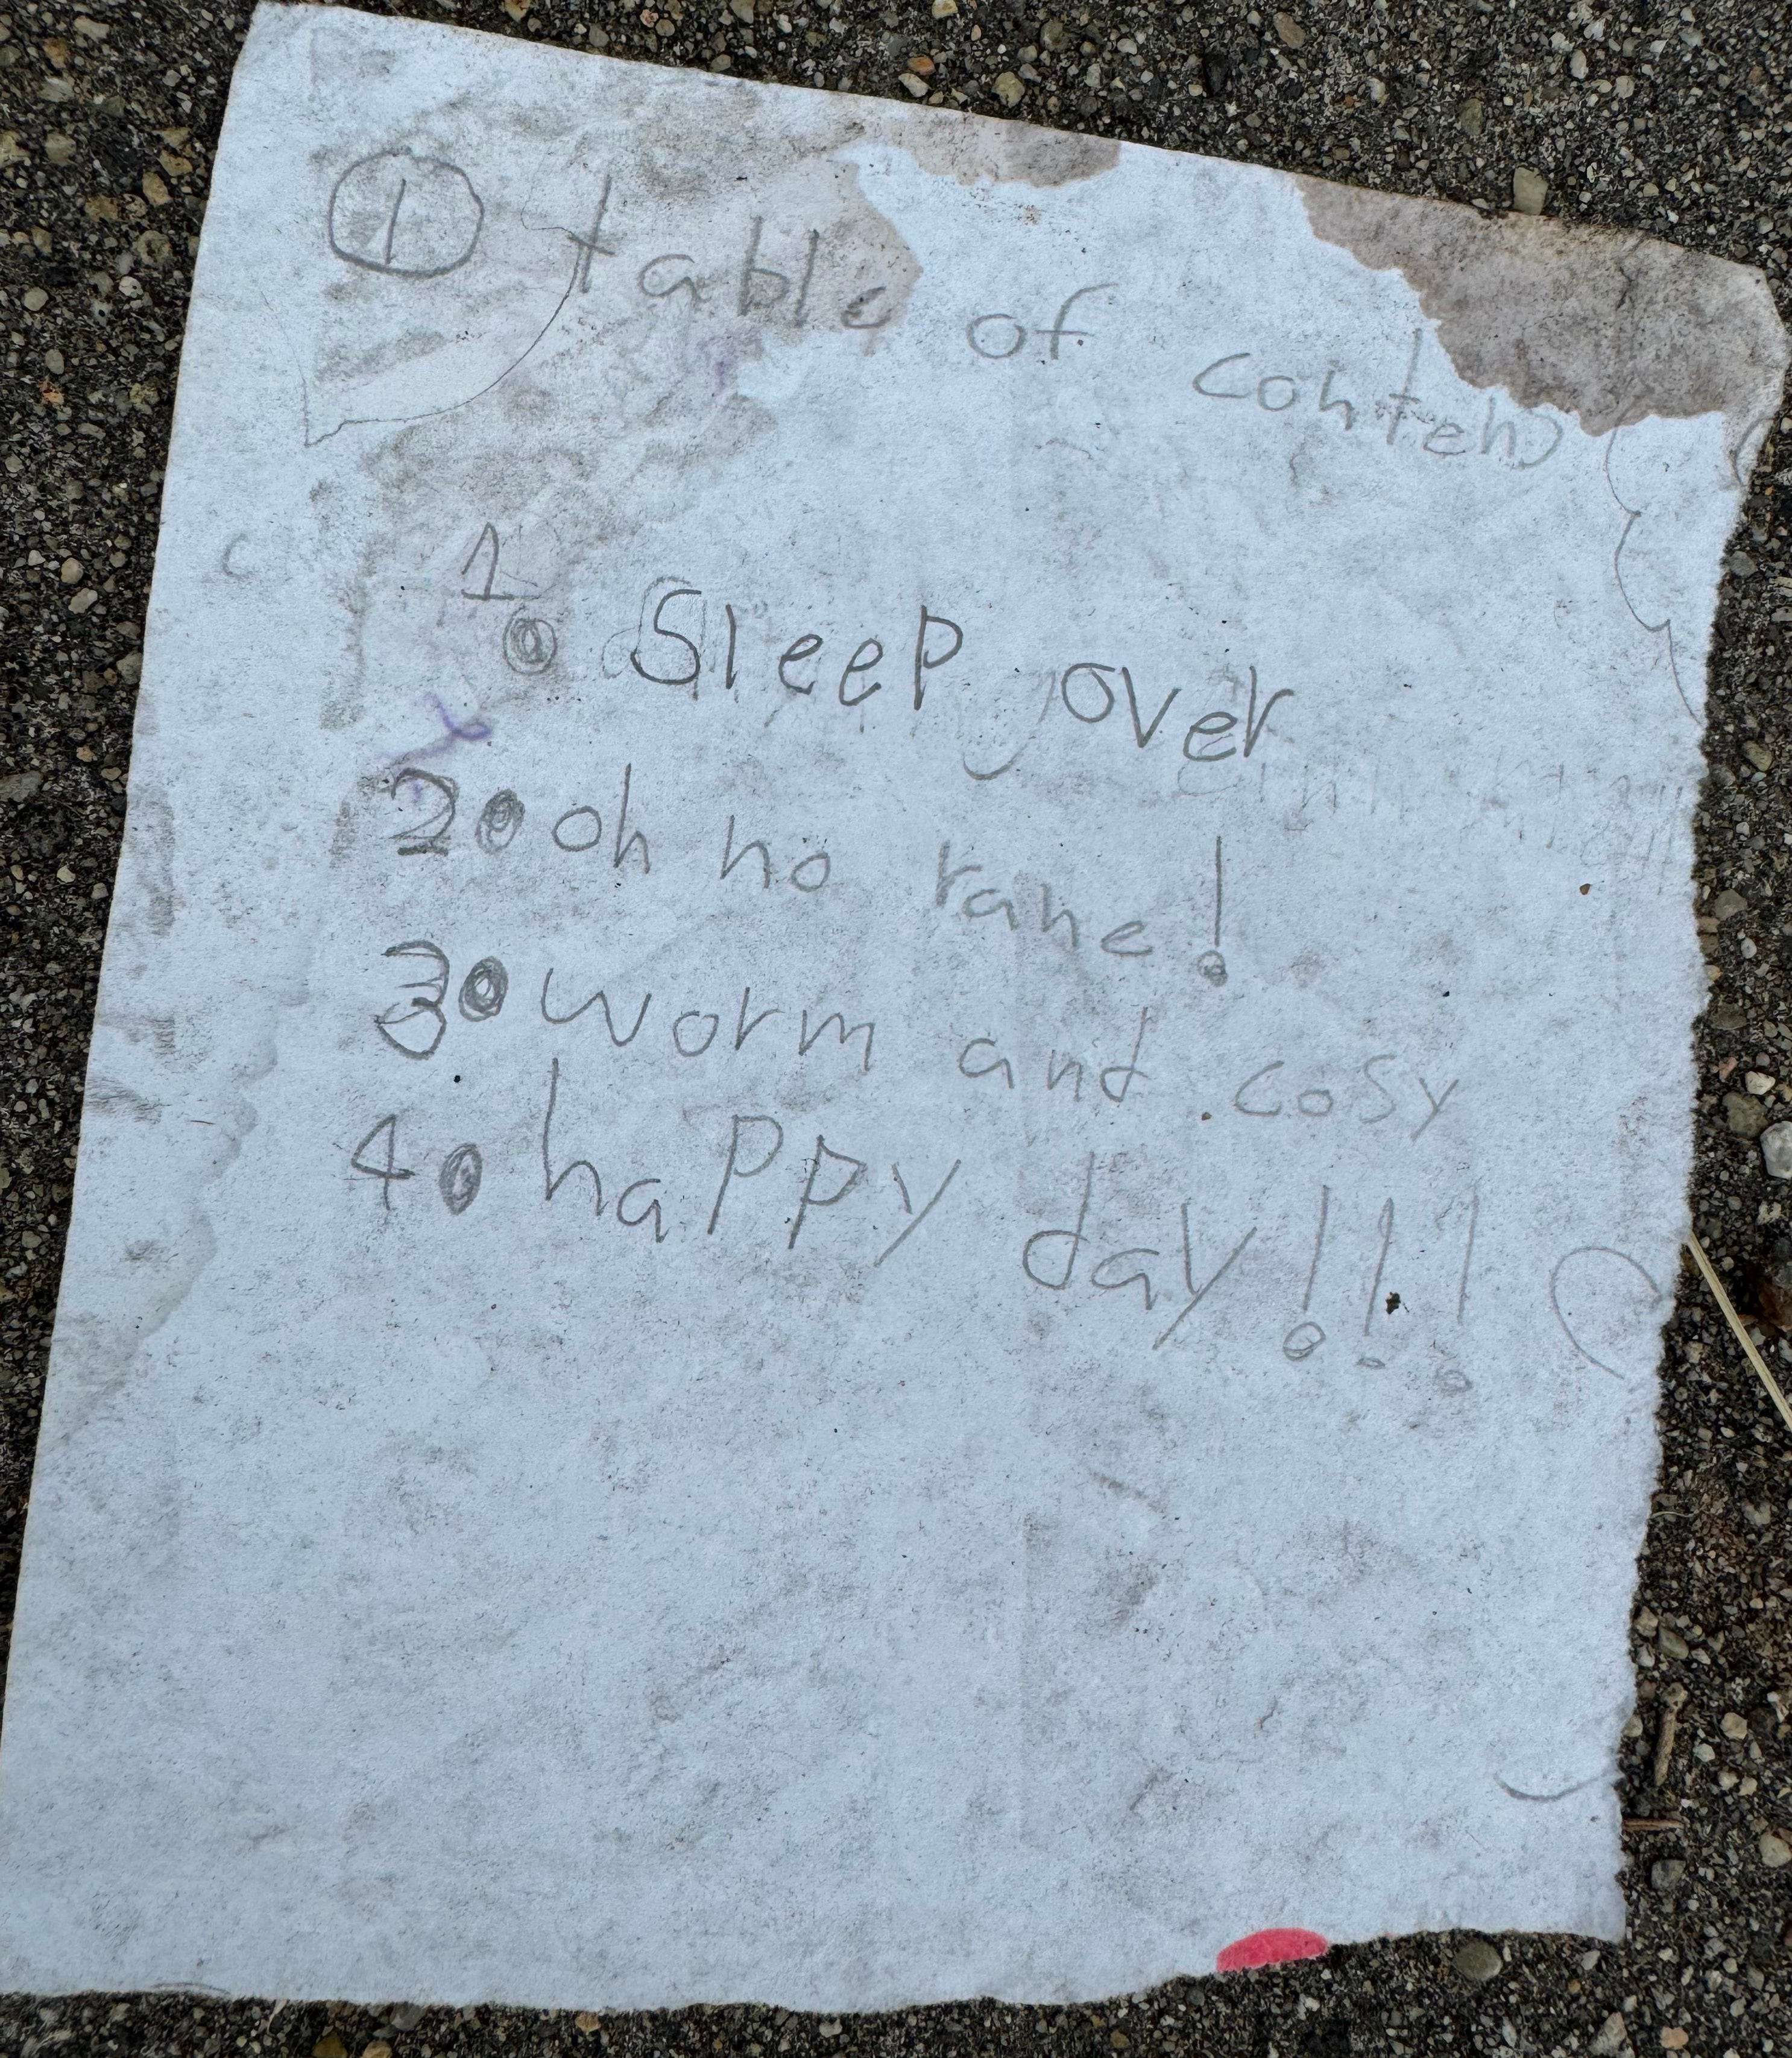 1 table of conten
1. Sleep over
2. oh no rane!
3. worm and cosy
4. happy day!!!